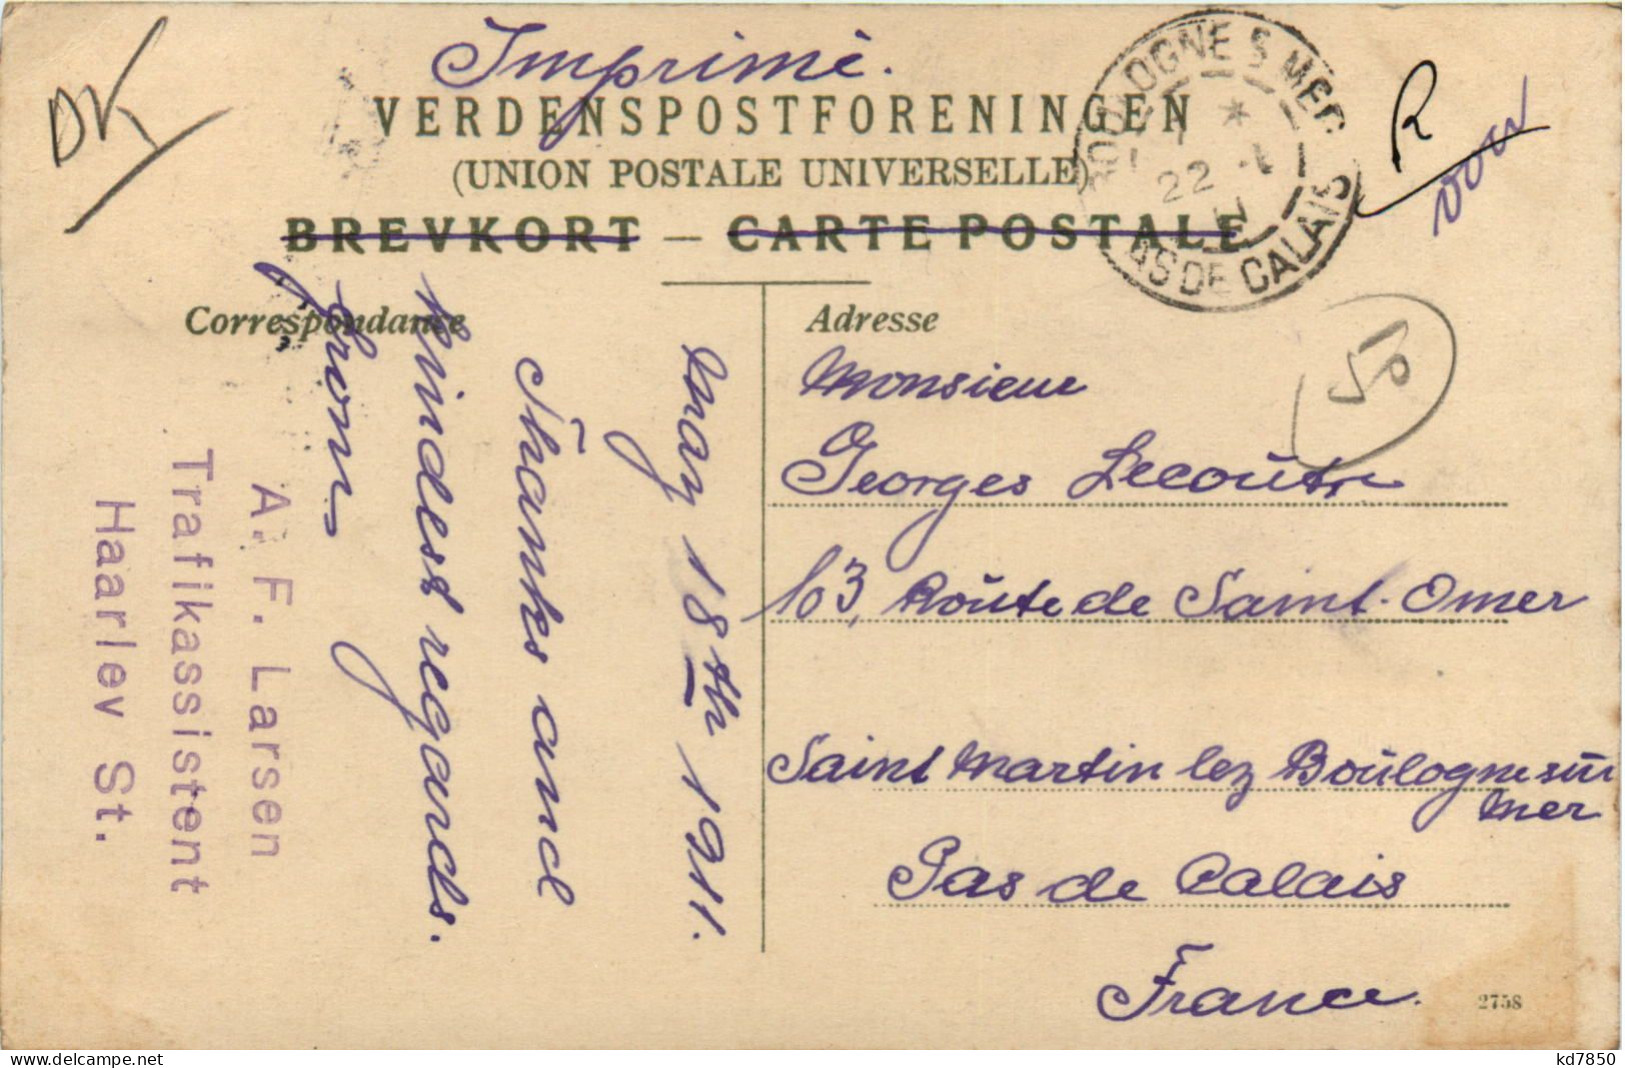 Imprimé.
DK
VERDENSPOSTFORENINGEN
(UNION POSTALE UNIVERSELLE)
BREVKORT — CARTE POSTALE
BOULOGNE S MER
22
PAS DE CALAIS
R
50
Correspondance
May 18th 1911.
Thanks and
kindest regards.
from
A. F. Larsen
Trafikassistent
Haarlev St.
Adresse
Monsieur
Georges Lecoutre
63, Route de Saint-Omer
Saint Martin lez Boulogne sur
mer
Pas de Calais
France.
2758
kd7850